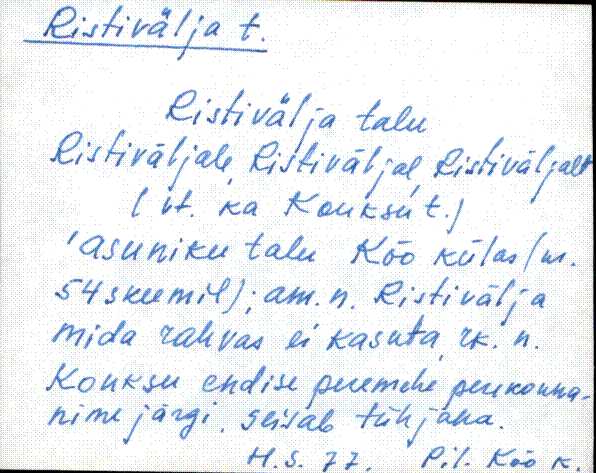 Ristivälja t.
Ristivälja talu
Ristiväljale, Ristiväljal, Ristiväljalt
( vt. ka Konksu t.)
'asuniku talu Kõo külas (nr.
54 skeemil); am. n. Ristivälja
mida rahvas ei kasuta, rk. n.
Konksu endise peremehe perekonna-
nime järgi, seisab tühjana.
H.S. 77. Pil. Kõo k.